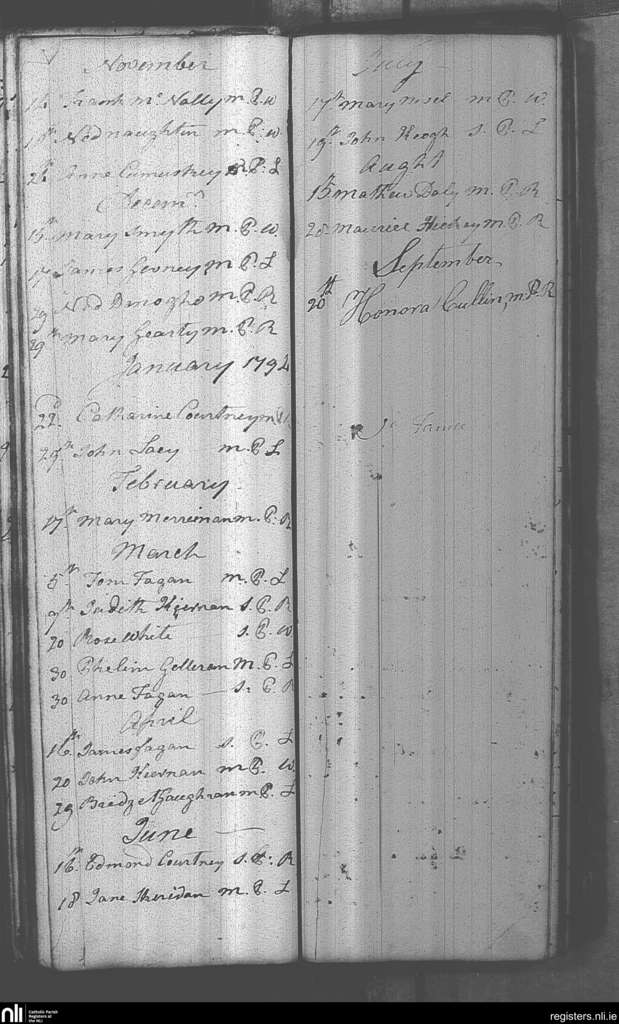 November
16th Frank Mc Nally m. P. W
18th Ned naughtin m. P. W
26th Anne Cumuskey P. L
Decemr
15th Mary Smyth m. P. W
17 James m. P. L
29 Ned m. P. R
29th Mary Gearty m. P. R
January 1794
22d Catharine Courtney m
29th John Lacy m. P. L
February
17th Mary Merreman m. P. R
March
5th Tom Fagan m. P. L
9th Judith Kiernan s. P. R
20 Rose White s. P. W
30 Phelim Gelleran m. P. L
30 Anne Fagan — s. P. R
April
16th James fagan s. P. L
20 John Kiernan m P. W
29 Bridget Gaughran m P. L
June —
16th Edmond Courtney s. P. R
18 Jane Sheridan m. P. L
July
17th Mary m. P. W.
19th John Keogh s. P. L
Aught
15 Mathew Daly m. P. R
20 Maurice Hickey m. P. R
September
20th Honora Cullin, m. P. R
nli Catholic Parish
Registers at
the NLI
registers.nli.ie